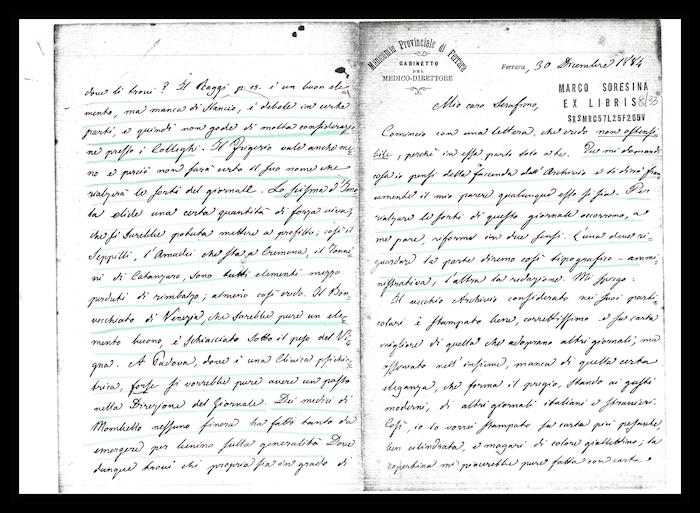 dove li trovi? Il Raggi p. es. è un buon ele=
mento, ma manca di slancio, è debole in certe
parti, e quindi non gode di molta considerazio=
ne presso i Colleghi. Il Frigerio vale anche me=
no e perciò non farà certo il suo nome che
rialzerà le sorti del giornale. Lo scisma d'Imo=
la elide una certa quantità di forza viva,
che si sarebbe potuta mettere a profitto; così il
Seppilli, l'Amadei che sta a Cremona, il Tonni=
ni di Catanzaro, sono tutti elementi mezzo
perduti di rimbalzo; almeno così credo. Il Bon=
vecchiato di Venezia, che sarebbe pure un ele=
mento buono, è schiacciato sotto il peso del Vi=
gna. A Padova, dove è una Clinica psichia=
trica, forse si vorrebbe pure avere un posto
nella Direzione del Giornale. Dei medici di
Mombello nessuno finora ha fatto tanto da
emergere per benino sulla generalità. Dove
dunque trovi chi propria sia in grado di
Manicomio Provinciale di Ferrara
GABINETTO
DEL
MEDICO-DIRETTORE
Ferrara, 30 Dicembre 1884
MARCO SORESINA
EX LIBRIS 8/33
SRSMRC57L25F205V
Mio caro Serafino,
Comincio con una lettera, che credo non ostensi=
bile, perchè in essa parlo solo a te. Tu mi domandi
cosa io pensi della faccenda dell'Archivio e ti dirò fran=
camente il mio parere qualunque esso si sia. Per
rialzare le sorti di questo giornale occorrono, a
me pare, riforme in due sensi. L'una deve ri=
guardare la parte diremo così tipografico-ammi=
nistrativa, l'altra la redazione. Mi spiego.
Il vecchio Archivio considerato nei suoi parti=
colari è stampato bene, correttissimo e su carta
migliore di quella che adoprano altri giornali; ma
osservato nell'insieme, manca di quella certa
eleganza, che forma il pregio, stando ai gusti
moderni, di altri giornali italiani e stranieri.
Così, io lo vorrei stampato su carta più pesante,
ben cilindrata, e magari di colore giallettino; la
copertina mi piacerebbe pure fatta con carta